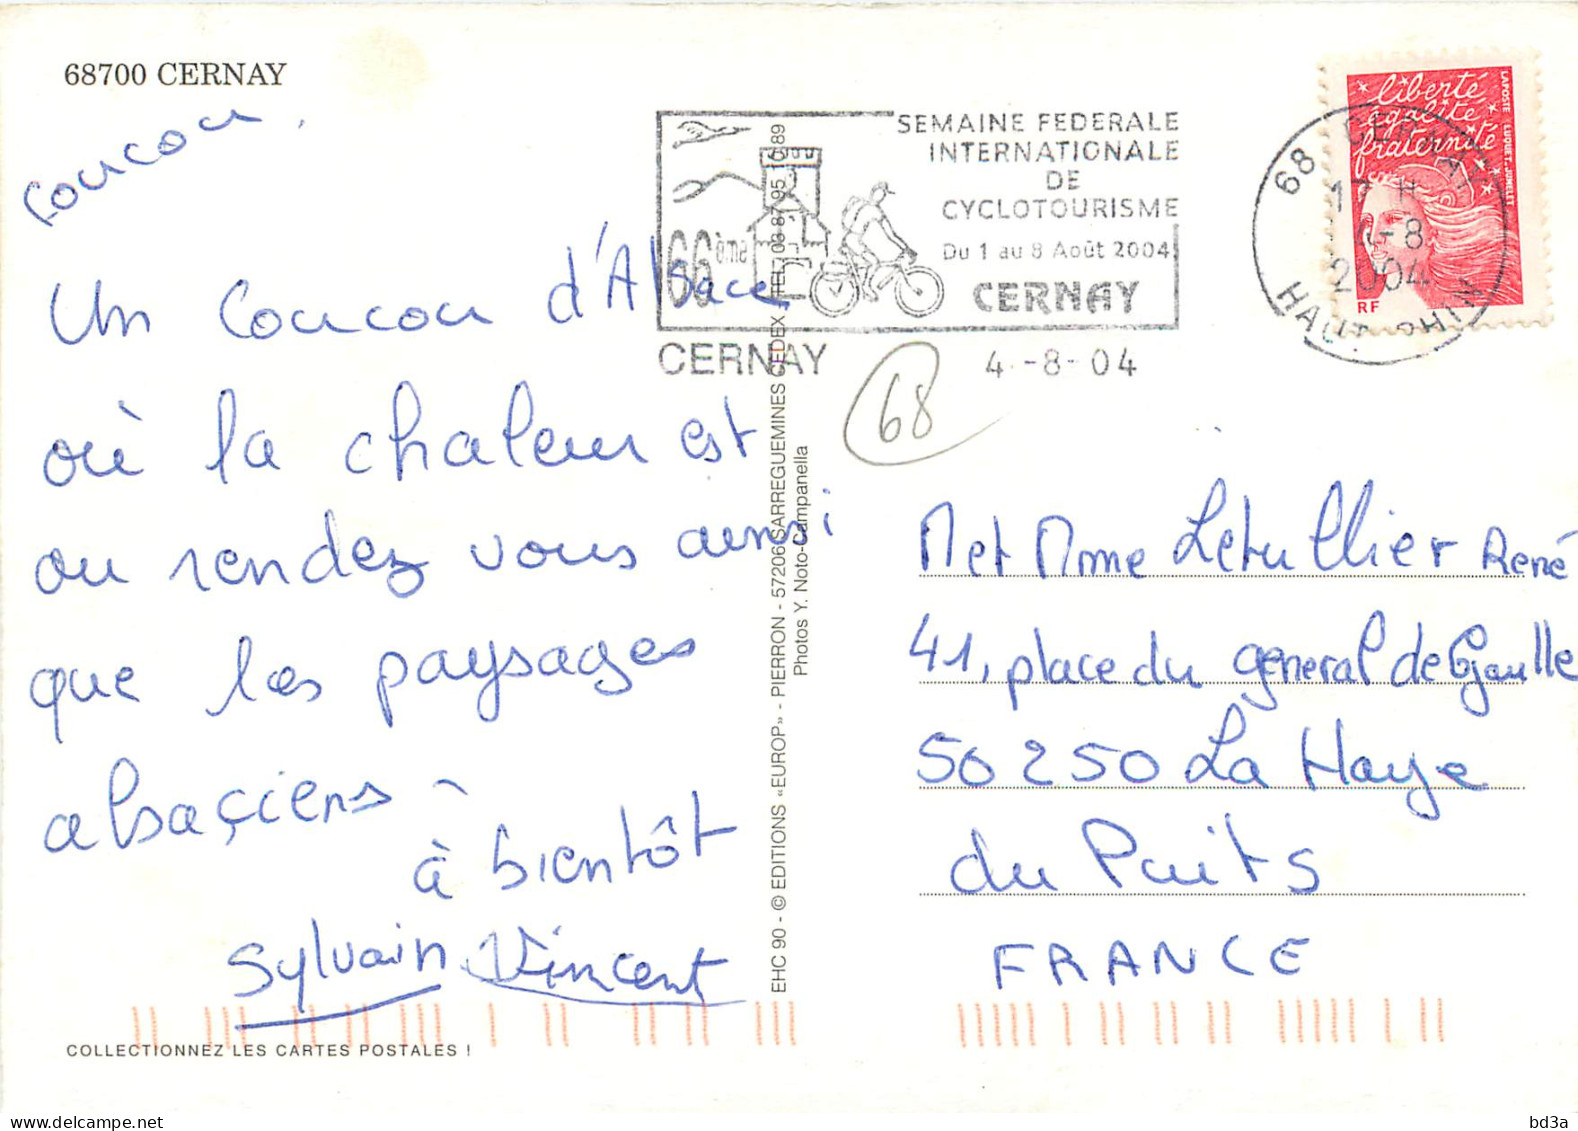 68700 CERNAY
coucou,
un coucou d'Alsace
où la chaleur est
au rendez vous ainsi
que les paysages
alsaçiens -
à bientôt
Sylvain Vincent
COLLECTIONNEZ LES CARTES POSTALES !
EHC 90 - © EDITIONS «EUROP» - PIERRON - 57206 SARREGUEMINES CEDEX TEL. 03 87 95 10 89
Photos Y. Noto-Campanella
66ème
SEMAINE FEDERALE
INTERNATIONALE
DE
CYCLOTOURISME
Du 1 au 8 Août 2004
CERNAY
CERNAY
4-8-04
68
68 CERNAY
17 H
4-8
2004
HAUT RHIN
liberté
égalité
fraternité
RF
LA POSTE LUQUET-JUMELET
M et Mme Letullier René
41, place du général de Gaulle
50250 La Haye
du Puits
FRANCE
delcampe.net
bd3a